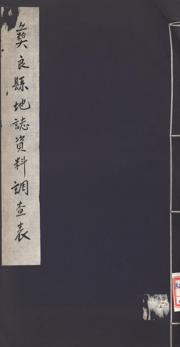 彝良縣地誌資料調查表